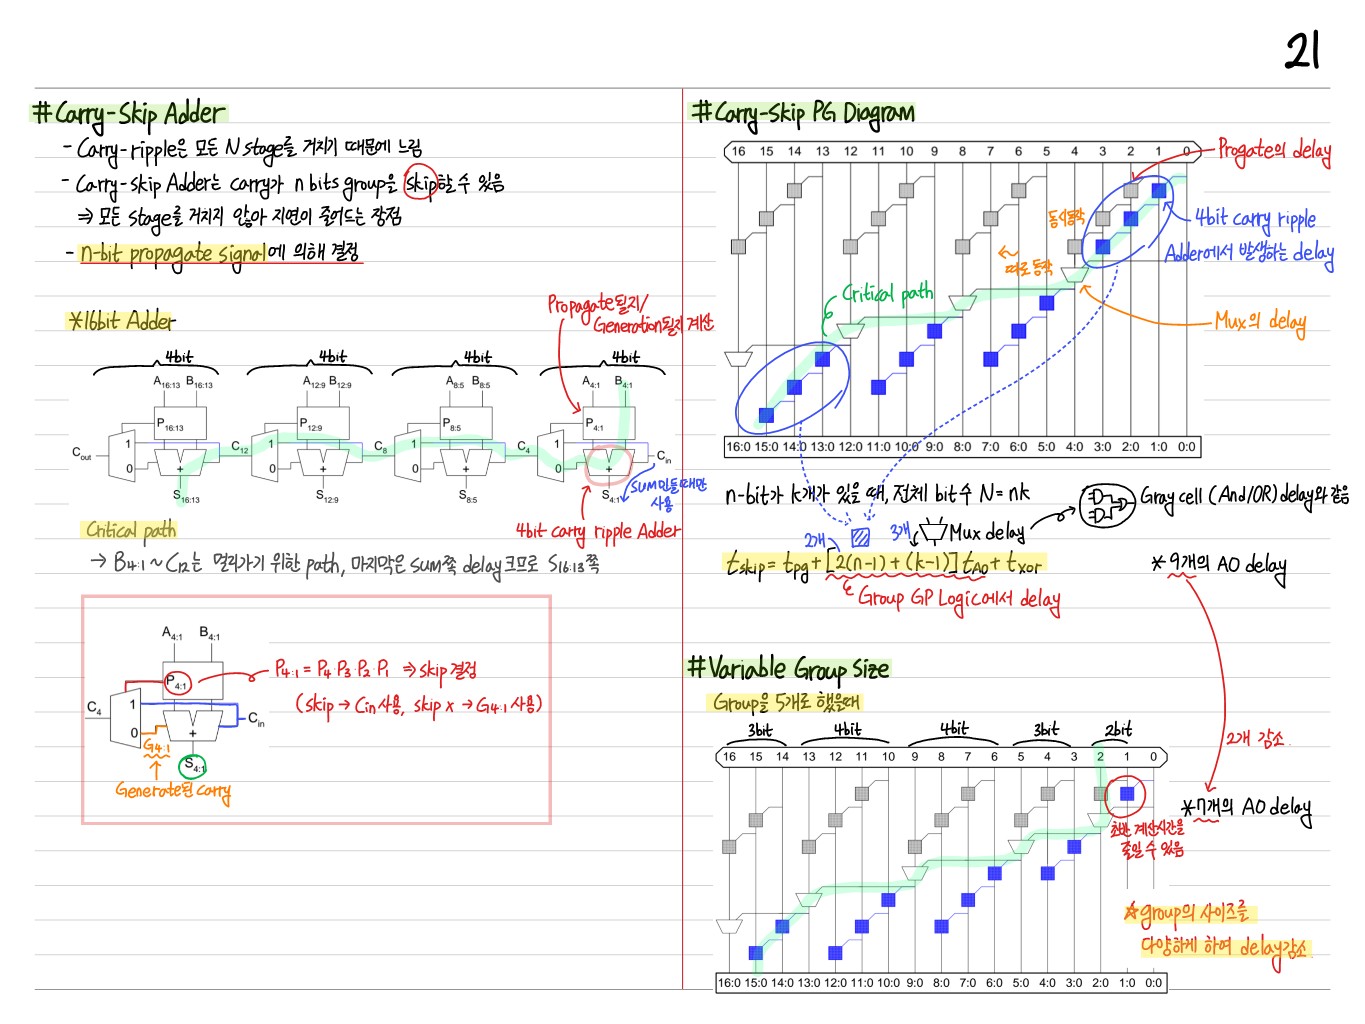 21
# Carry-Skip Adder
- Carry-ripple은 모든 N stage를 거치기 때문에 느림
- Carry-skip Adder는 carry가 n bits group을 skip할 수 있음
⇒ 모든 stage를 거치지 않아 지연이 줄어드는 장점
- n-bit propagate signal에 의해 결정
*16bit Adder
Propagate될지/
Generation될지 계산
4bit 4bit 4bit 4bit
A16:13 B16:13 A12:9 B12:9 A8:5 B8:5 A4:1 B4:1
P16:13 P12:9 P8:5 P4:1
Cout 1 0 + C12 1 0 + C8 1 0 + C4 1 0 + Cin
S16:13 S12:9 S8:5 S4:1
SUM만들때만
사용
4bit carry ripple Adder
Critical path
→ B4:1 ~ C12는 멀리가기 위한 path, 마지막은 sum쪽 delay 크므로 S16:13쪽
A4:1 B4:1
P4:1
C4 1 0 + Cin
G4:1
S4:1
Generate된 carry
P4:1 = P4·P3·P2·P1 ⇒ skip 결정
(skip → Cin 사용, skip x → G4:1 사용)
# Carry-Skip PG Diagram
16 15 14 13 12 11 10 9 8 7 6 5 4 3 2 1 0
Progate의 delay
동시동작
4bit carry ripple
Adder에서 발생하는 delay
따로 동작
Critical path
Mux의 delay
16:0 15:0 14:0 13:0 12:0 11:0 10:0 9:0 8:0 7:0 6:0 5:0 4:0 3:0 2:0 1:0 0:0
n-bit가 k개가 있을 때, 전체 bit수 N = nk
Gray cell (And/OR) delay와 같음
2개 3개 Mux delay
tskip = tpg + [2(n-1) + (k-1)] tAO + txor
* 9개의 AO delay
Group GP Logic에서 delay
# Variable Group Size
Group을 5개로 했을때
3bit 4bit 4bit 3bit 2bit
16 15 14 13 12 11 10 9 8 7 6 5 4 3 2 1 0
2개 감소
* 7개의 AO delay
초반 계산시간을
줄일 수 있음
☆group의 사이즈를
다양하게 하여 delay감소
16:0 15:0 14:0 13:0 12:0 11:0 10:0 9:0 8:0 7:0 6:0 5:0 4:0 3:0 2:0 1:0 0:0